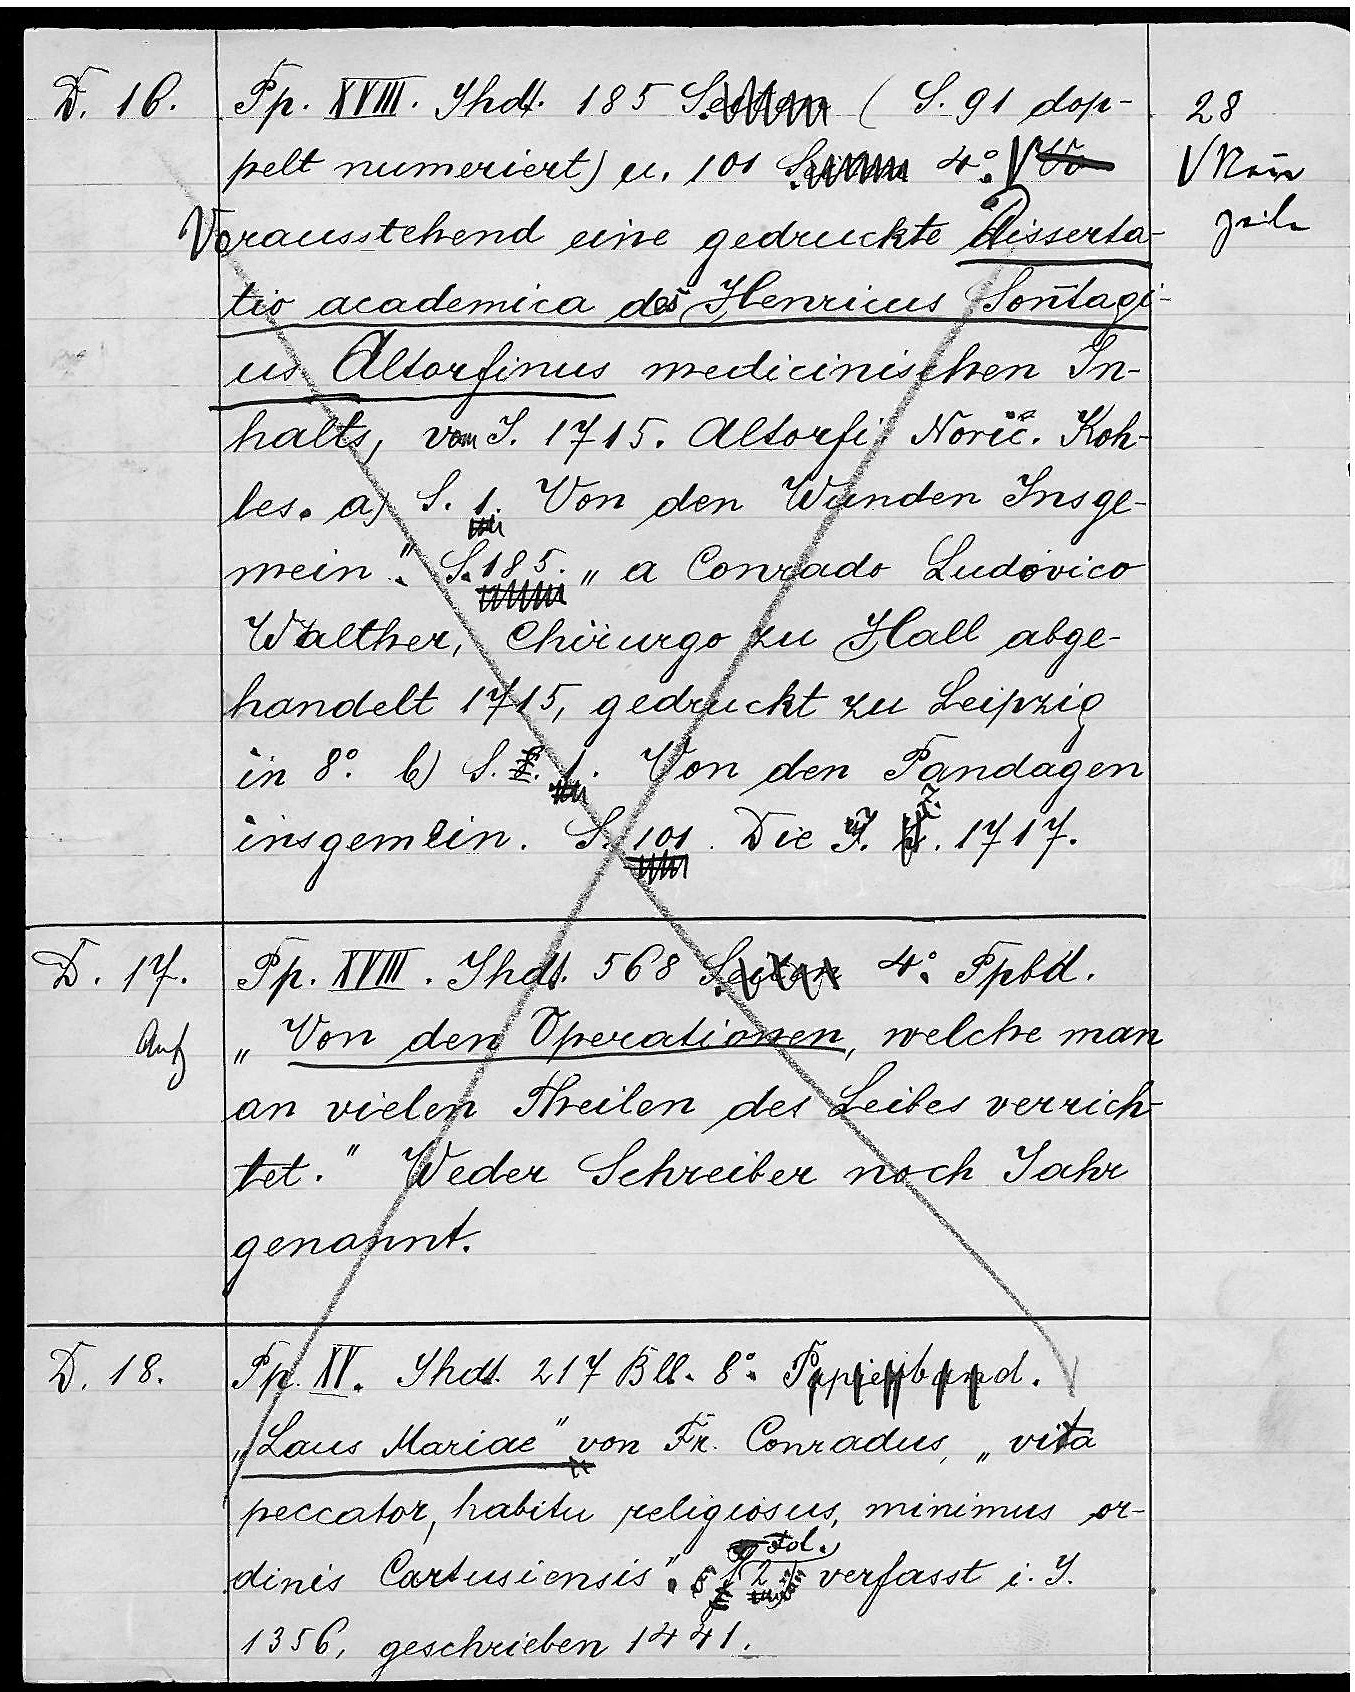 D. 16. Pp. XVIII. Jhdt. 185 Seiten (S. 91 dop- 28
pelt numeriert) u. 101 Seiten 4°.
Vorausstehend eine gedruckte Disserta-
tio academica des Henricus Son̄tagi-
us Altorfinus medicinischen In-
halts, vom J. 1715. Altorfi Noric. Koh-
les. a) S. 1. Von den Wunden Insge-
mein". S. 185. „a Conrado Ludovico
Walther, Chirurgo zu Hall abge-
handelt 1715, gedruckt zu Leipzig
in 8°. b) S. 1. Von den Pandagen
insgemein. S. 101. Die 1717.
D. 17. Pp. XVIII. Jhdt. 568 Seiten 4°. Ppbd.
„Von den Operationen, welche man
an vielen Theilen des Leibes verrich-
tet." Weder Schreiber noch Jahr
genannt.
D. 18. Pp. XV. Jhdt. 217 Bll. 8°. Papierband.
„Laus Mariae" von Fr. Conradus, „vita
peccator, habitu religiosus, minimus or-
dinis Cartusiensis". Fol. 2 verfasst i. J.
1356, geschrieben 1441.